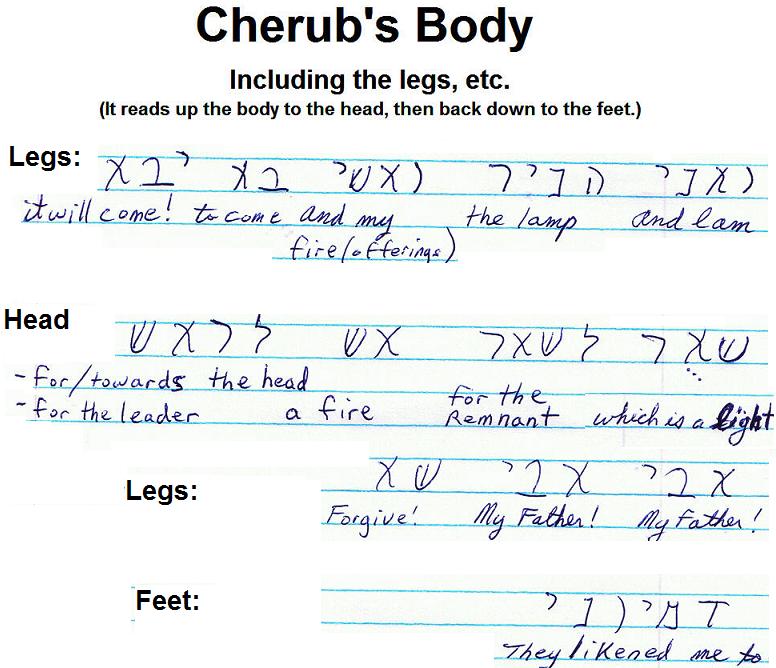 Cherub's Body
Including the legs, etc.
(It reads up the body to the head, then back down to the feet.)
Legs: ואני הניר ואשי בא יבא
it will come! to come and my the lamp and I am
fire(offerings)
Head שאר לשאר אש לראש
-for/towards the head
-for the leader a fire for the Remnant which is a light
Legs: אבי אבי שא
Forgive! My Father! My Father!
Feet: דמיוני
They likened me to